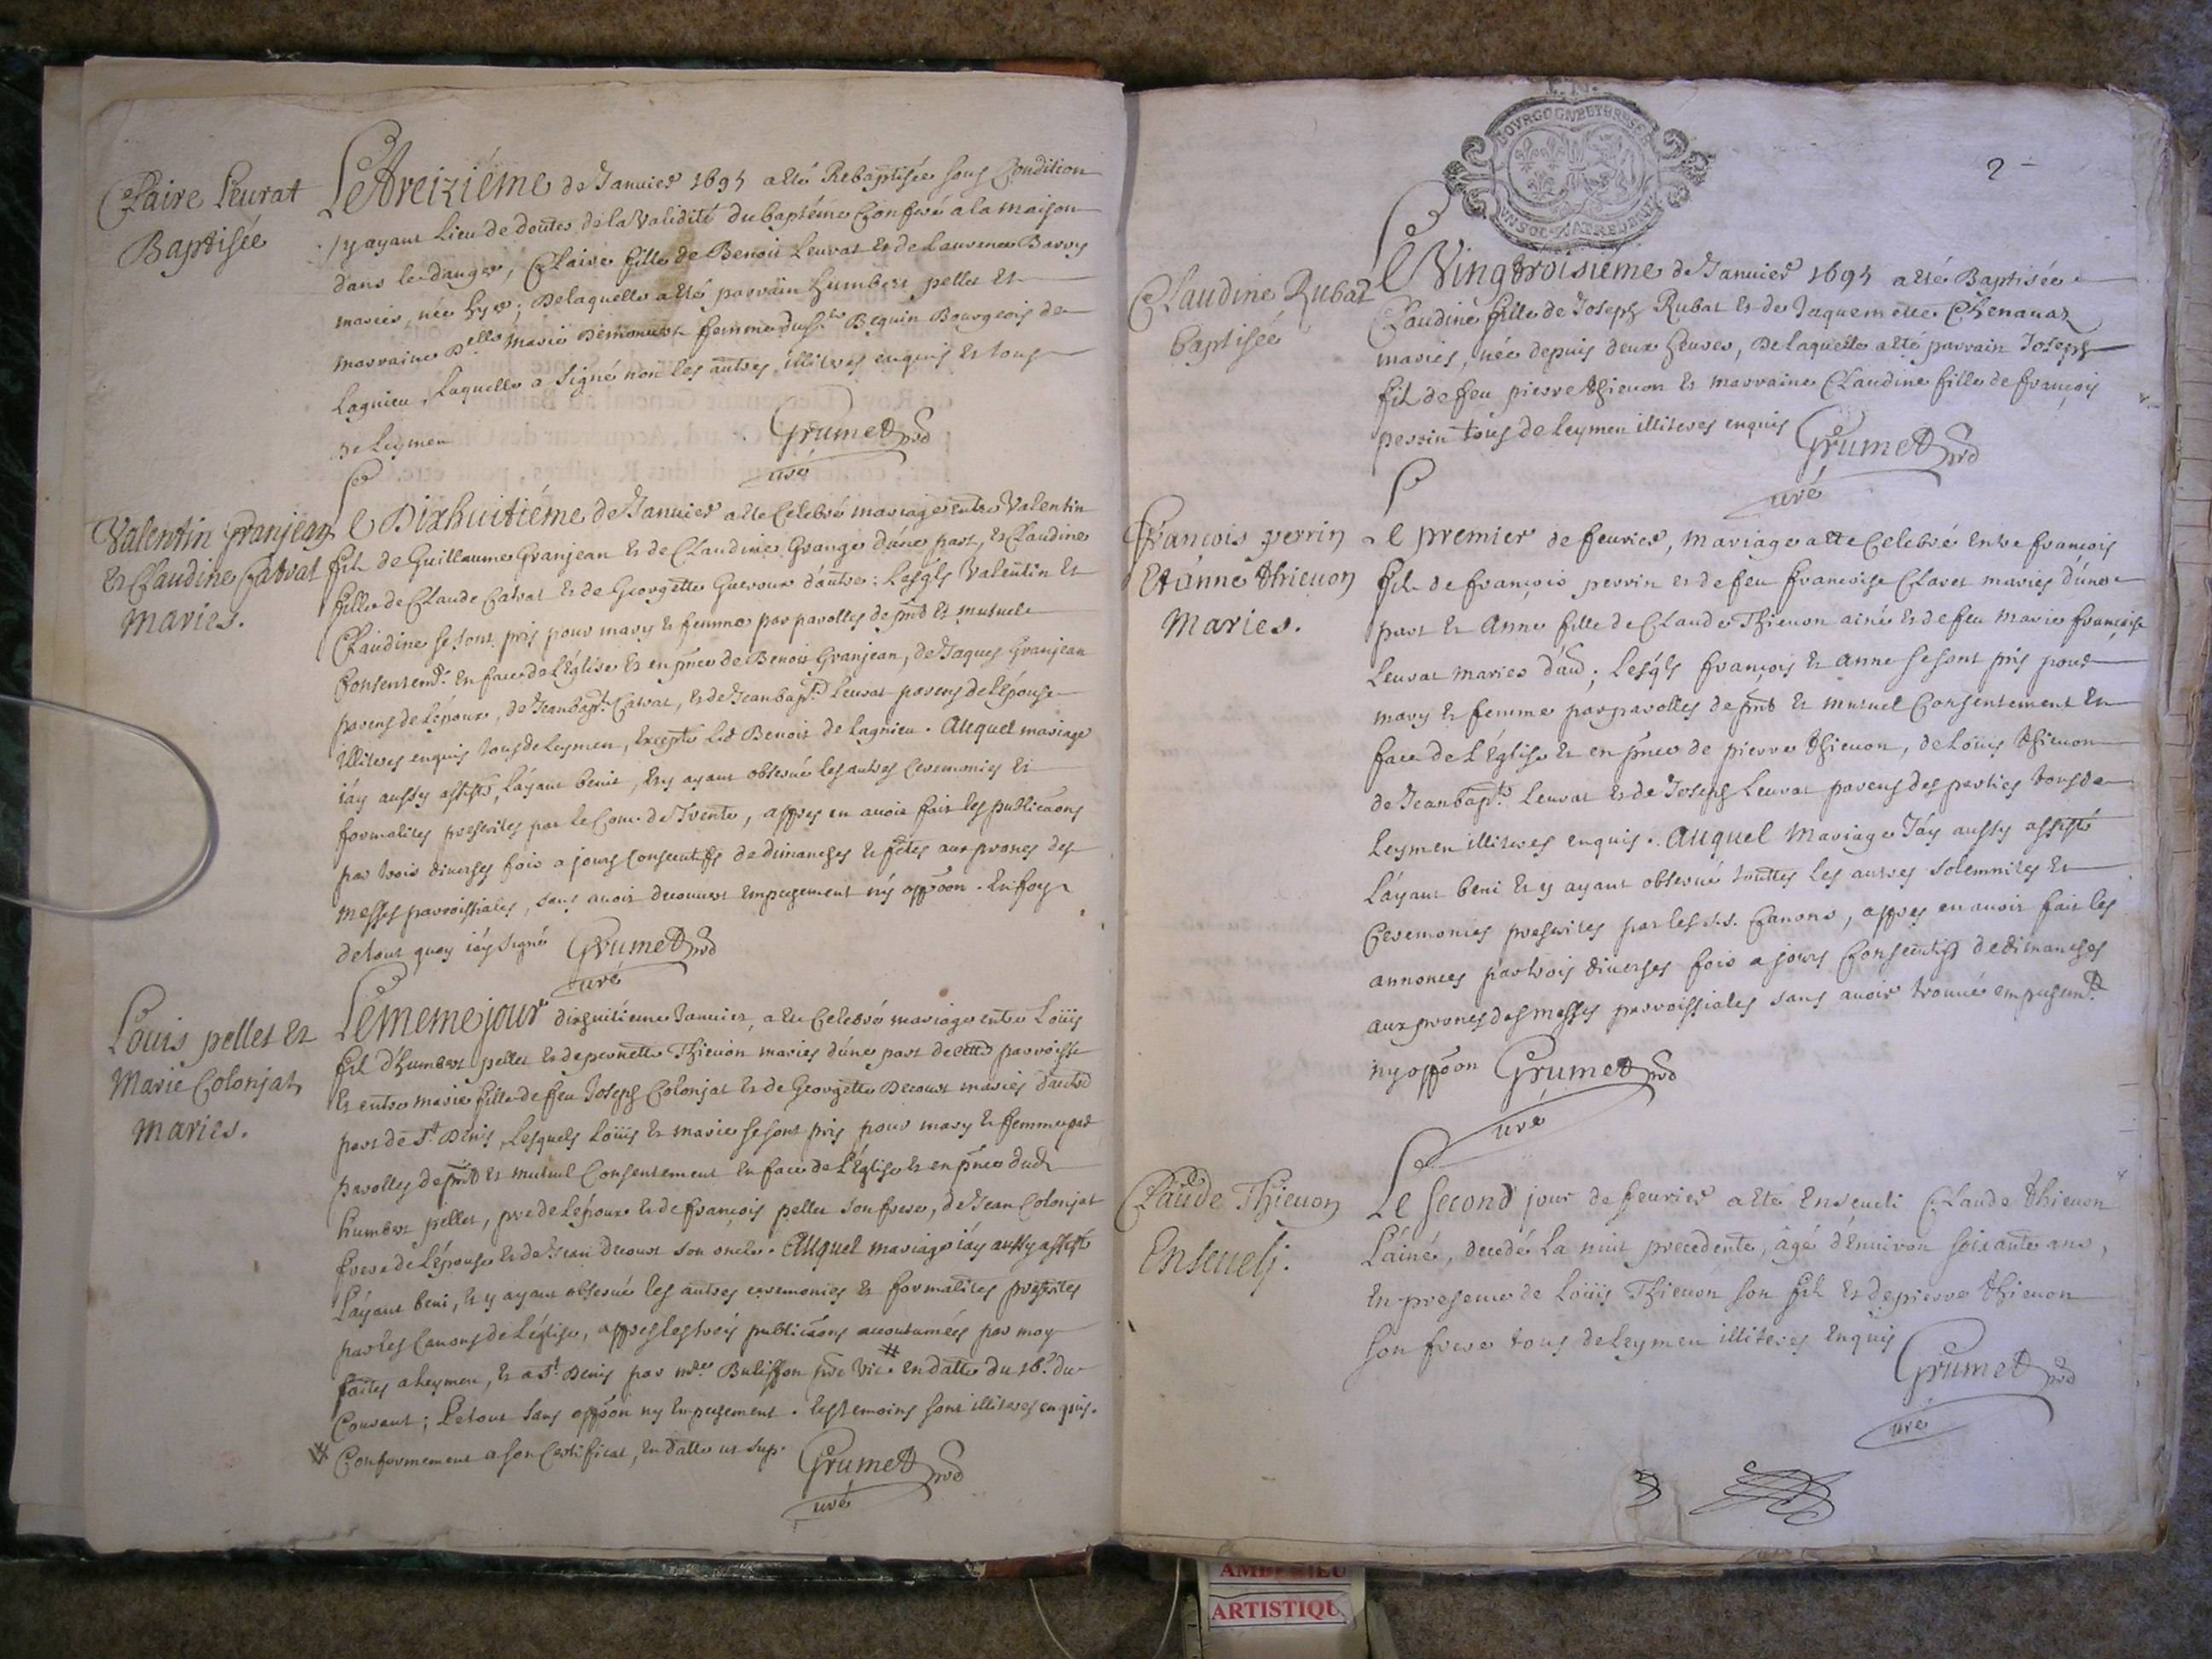 Claire Leurat
Baptisée
Le treiziéme de Januier 1695 a été Rebaptisée sous Condition
y ayant Lieu de doute de la Validité du baptême Conferé a la maison
dans le danger, Claire fille de Benoit Leurat et de Laurence Barry
mariés née hyer; De laquelle a été parrain humbert pellet et
marraine Delle Marie Demonuert femme du Sr Beguin Bourgeois de
Lagnieu, Laquelle a Signé non les autres illitéres enquis et tous
de Leymen
Grumet prd
curé
Valentin Granjean
et Claudine Catrat
Mariés.
Le Dixhuitiéme de Januier a été Celebré mariage entre Valentin
fils de Guillaume Granjean et de Claudine Grange d'une part, et Claudine
fille de Claude Catrat et de Georgette Gueroux d'autre: Lesqls Valentin et
Claudine se sont pris pour mary et femme par parolles de pnt et mutuel
Consentemt. en face de L'Eglise et en pnce de Benoit Granjean, de Jaques Granjean
parens de L'époux, de Jeanbapt. Catrat, et de Jeanbapt. Leurat parens de L'épouse
illitéres enquis tous de Leymen, Excepté Led Benoit de Lagnieu. Auquel mariage
i'ay aussy assisté, L'ayant benit, et y ayant obserué les autres Ceremonies et
formalites prescrites par le Conc. de Trente, appres en auoir fait les publicaons
par trois diuerses fois a jours Consecutifs de dimanches et fêtes aux prones des
Messes parroissiales, sans auoir decouuert Empeschement ny oppoon. En foy
de tout quoy i'ay signé Grumet prd
curé
Louis pellet et
Marie Colonjat
Mariés.
Le meme jour dixhuitiéme Januier, a été Celebré mariage entre Loüis
fils d'humbert pellet et de pernette Thieuon mariés d'une part de cette parroisse
et entre marie fille de feu Joseph Colonjat et de Georgette Decourt mariés d'autre
part de St. Denis, Lesquels Loüis et marie se sont pris pour mary et femme par
parolles de pnt et mutuel Consentement en face de L'Eglise et en pnce dud
humbert pellet, pre de L'époux et de françois pellet son frere, de Jean Colonjat
frere de L'épouse et de Jean decourt son oncle. Auquel mariage i'ay aussy assisté
L'ayant beni, et y ayant obserué les autres ceremonies et formalites prescrites
par les Canons de L'église, appres les trois publicaons accoutumées par moy
faites a Leymen, et a St. Denis par mre. Buliffon pre Vic.# en datte du 16. du
Courant; Le tout sans oppoon ny Empeschement. Les temoins sont illitéres enquis.
# Conformement a son Certificat, en datte ut sup.
Grumet prd
curé
BOURGOGNE ET BRESSE
UN SOL QUATRE DEN
2
Claudine Rubat
baptisée
Le Vingttroisiéme de Januier 1695 a été Baptisée
Claudine fille de Joseph Rubat et de Jaquemette Chenauaz
mariés, née depuis deux heures, De laquelle a été parrain Joseph
fils de feu pierre thieuon et marraine Claudine fille de françois
perrin tous de Leymen illitéres enquis
Grumet prd
curé
François perrin
Et anne thieuon
Mariés.
Le premier de feurier, mariage a été Celebré Entre françois
fils de françois perrin et de feu françoise Claret mariés d'une
part et Anne fille de Claude Thieuon ainé et de feu Marie françoise
Leurat mariés d'aud; Lesqls françois et anne se sont pris pour
mary et femme par parolles de pnt et mutuel Consentement en
face de L'Eglise et en pnce de pierre thieuon, de Loüis thieuon
de Jeanbapt. Leurat et de Joseph Leurat parens des parties tous de
Leymen illitéres enquis. Auquel Mariage J'ay aussy assisté
L'ayant beni et y ayant obserué touttes les autres solemnites et
Ceremonies prescrites par les S.S. Canons, appres en auoir fait les
annonces par trois diuerses fois a jours Consecutifs de dimanches
aux prones des messes parroissiales sans auoir trouué empeschemt
ny oppoon Grumet prd
curé
Claude Thieuon
Enseueli.
Le second jour de feurier a été Enseueli Claude thieuon
L'ainé, decedé La nuit precedente, agé d'Enuiron soixante ans,
en presence de Loüis Thieuon son fils et de pierre thieuon
son frere tous de Leymen illitéres Enquis
Grumet prd
curé
ARTISTIQU